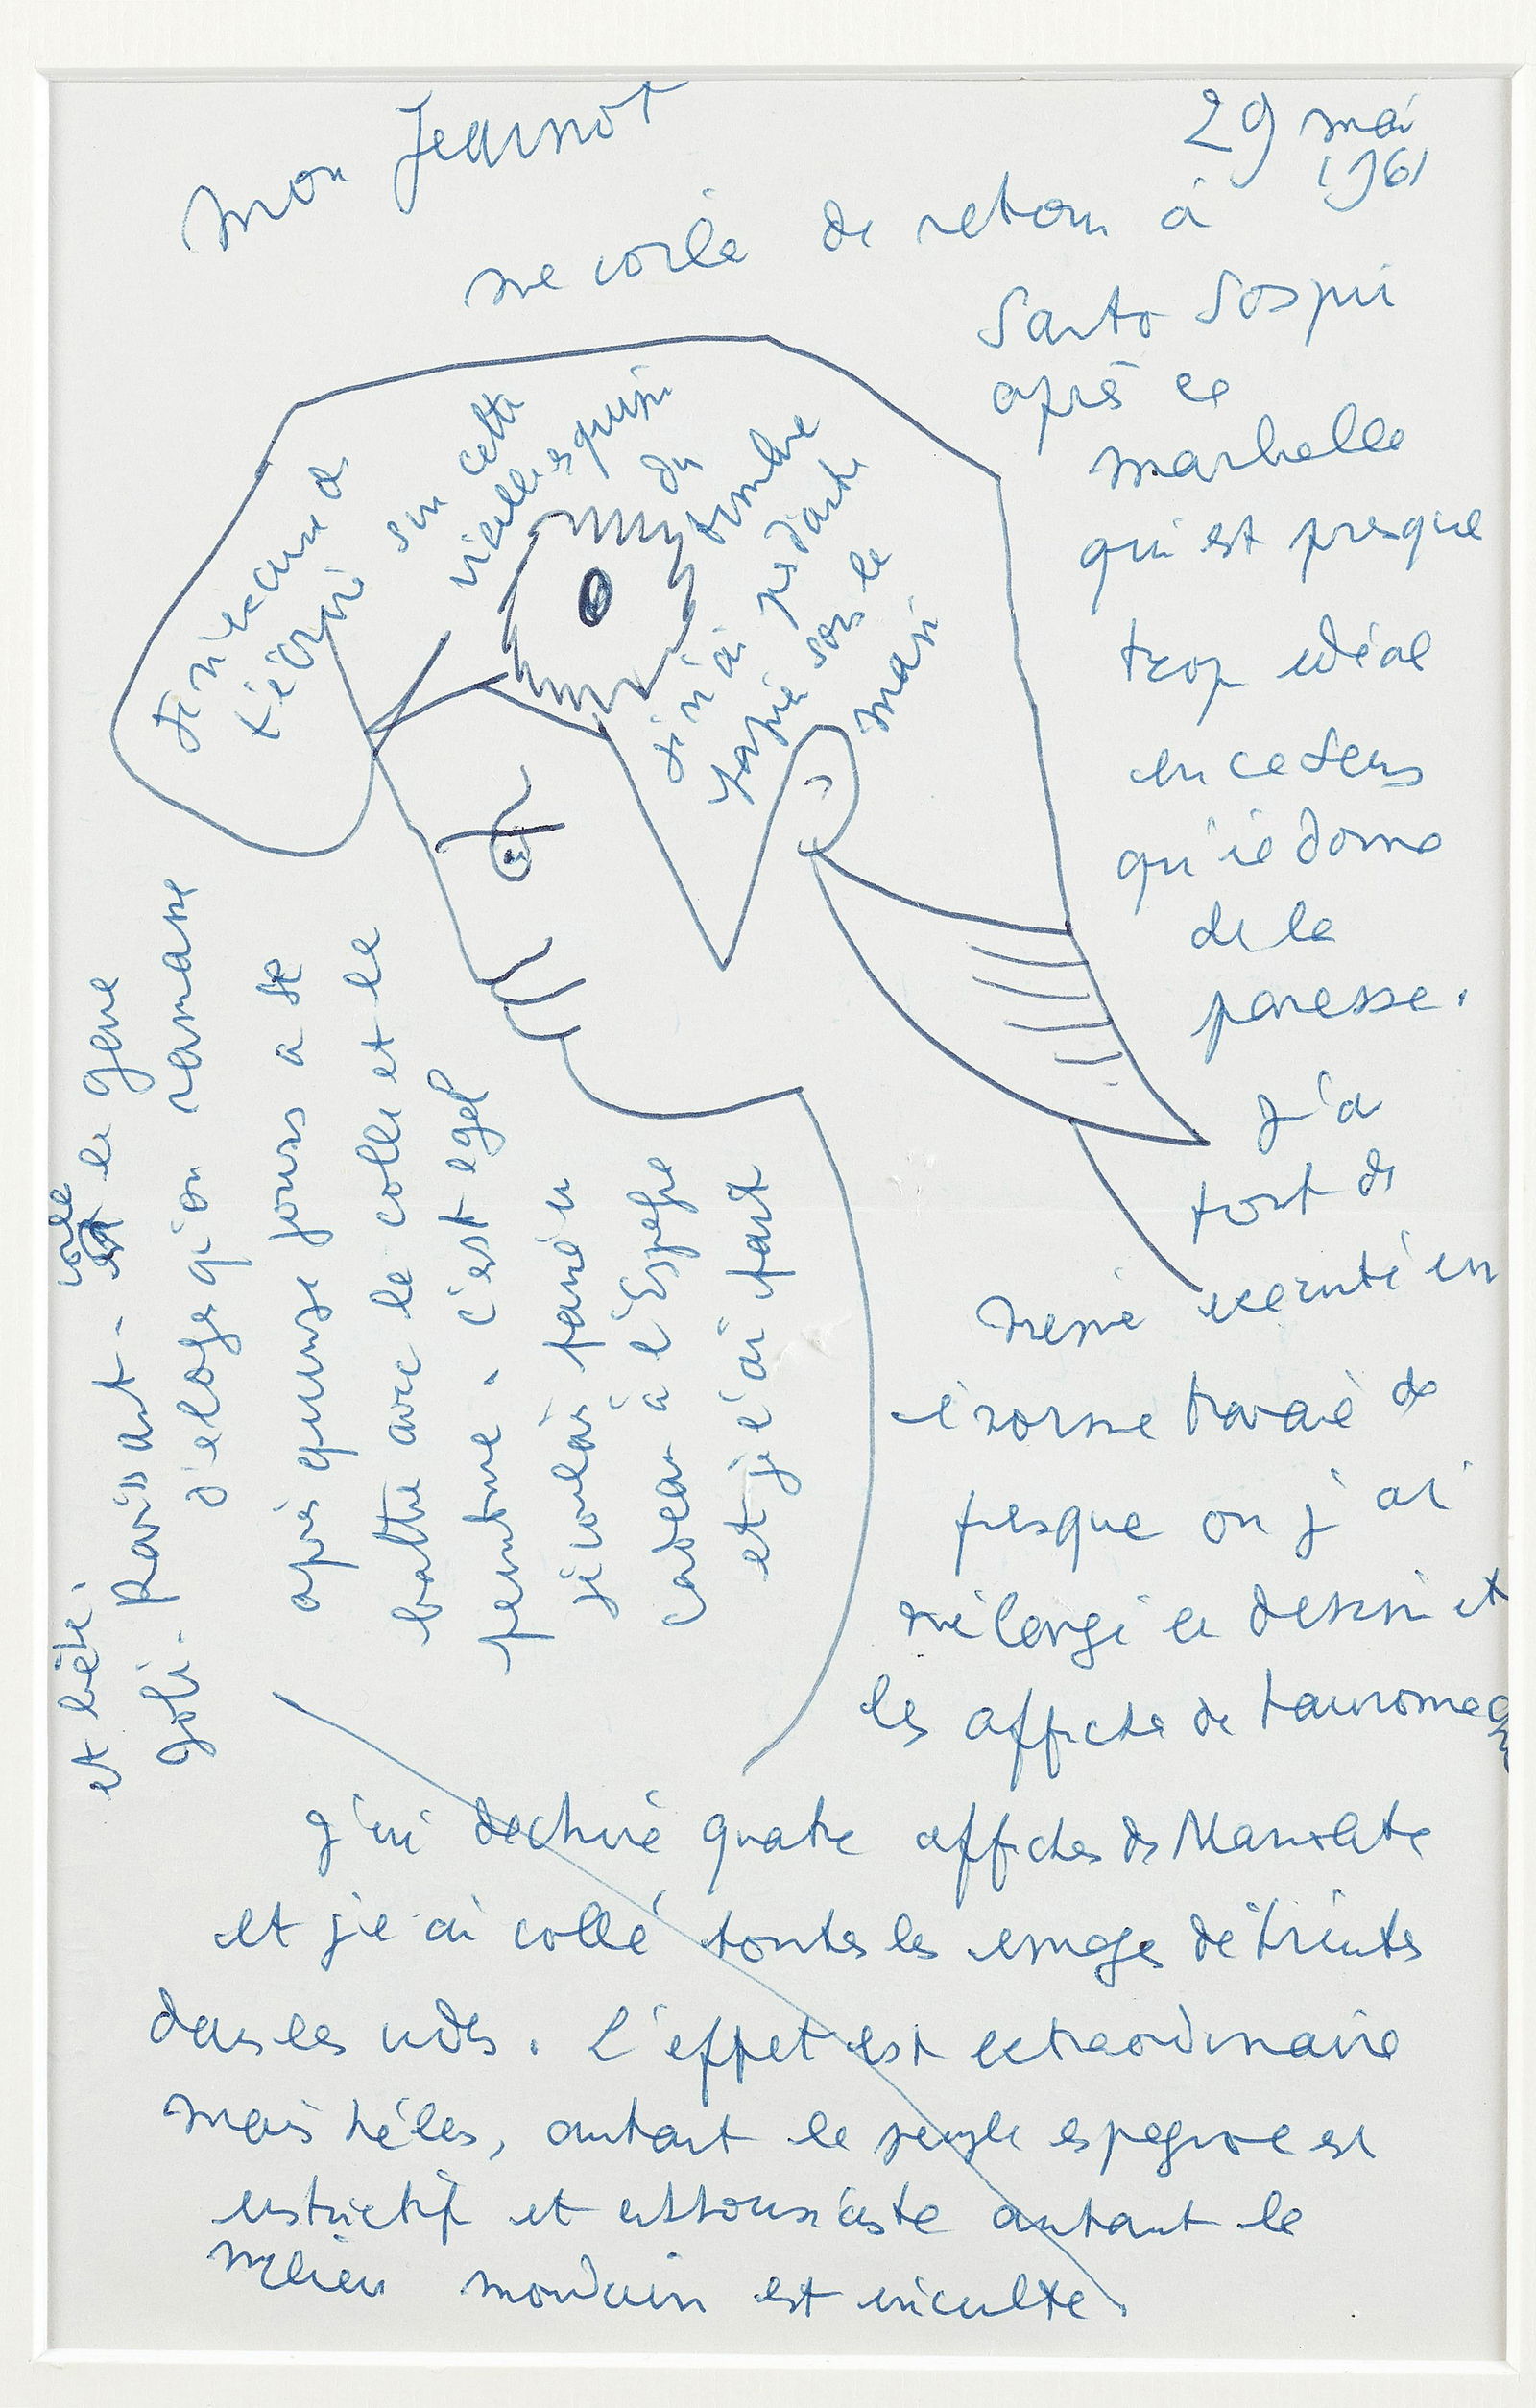 29 mai
1961
Mon Jeannot
me voilà de retour à
Santo Sospir
après ce
Marbella
qui est presque
trop idéal
en ce sens
qu'il donne
de la
paresse.
J'ai
tout de
même exécuté un
énorme travail de
fresque où j'ai
mélangé le dessin et
les affiches de tauromachie
j'ai déchiré quatre affiches de Manolete
et j'ai collé toutes les images détruites
dans les vides. L'effet est extraordinaire
mais hélas, autant le peuple espagnol est
instinctif et enthousiaste autant le
milieu mondain est inculte
et bête.
joli. Ravissant. voilà le genre
d'éloge qu'on ramasse
après quinze jours à se
battre avec la colle et la
peinture. C'est égal
je voulais faire un
cadeau à l'Espagne
et je l'ai fait
Je m'excuse de
t'écrire sur cette
vieille esquisse
du timbre
je n'ai pas d'autre
papier sous la
main